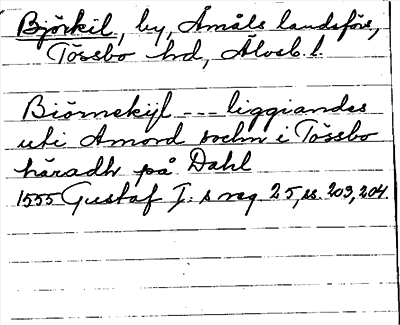 Björkil, by, Åmåls landsförs,
Tössbo hd, Älvsb. l.
Biörnekijl --- liggiandes
uti Amord sochn i Tössbo
häradh på Dahl
1555 Gustaf I:s reg 25, ss. 203, 204.